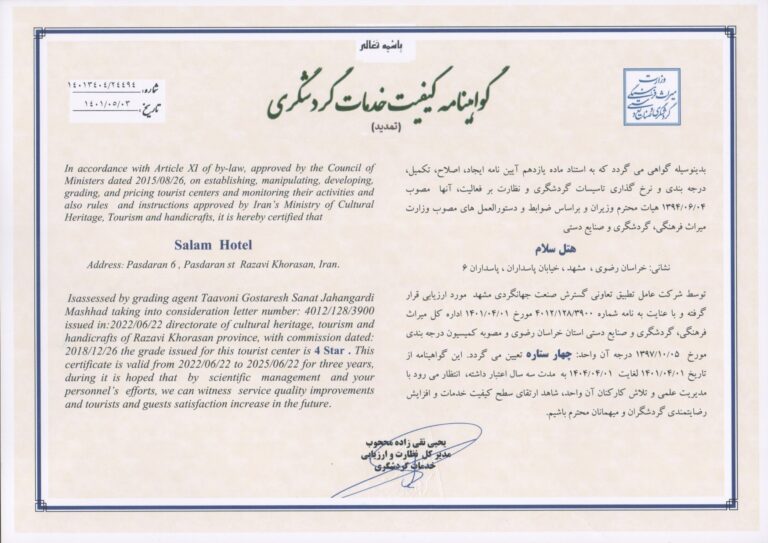 باسمه تعالی
وزارت
میراث فرهنگی
گردشگری و صنایع دستی
گواهینامه کیفیت خدمات گردشگری
(تمدید)
شماره: ۱۴۰۱۳۴۰۴/۲۴۴۹۴
تاریخ: ۱۴۰۱/۰۵/۰۳
In accordance with Article XI of by-law, approved by the Council of
Ministers dated 2015/08/26, on establishing, manipulating, developing,
grading, and pricing tourist centers and monitoring their activities and
also rules and instructions approved by Iran's Ministry of Cultural
Heritage, Tourism and handicrafts, it is hereby certified that
Salam Hotel
Address: Pasdaran 6 , Pasdaran st Razavi Khorasan, Iran.
Isassessed by grading agent Taavoni Gostaresh Sanat Jahangardi
Mashhad taking into consideration letter number: 4012/128/3900
issued in:2022/06/22 directorate of cultural heritage, tourism and
handicrafts of Razavi Khorasan province, with commission dated:
2018/12/26 the grade issued for this tourist center is 4 Star . This
certificate is valid from 2022/06/22 to 2025/06/22 for three years,
during it is hoped that by scientific management and your
personnel's efforts, we can witness service quality improvements
and tourists and guests satisfaction increase in the future.
بدینوسیله گواهی می گردد که به استناد ماده یازدهم آیین نامه ایجاد، اصلاح، تکمیل،
درجه بندی و نرخ گذاری تاسیسات گردشگری و نظارت بر فعالیت، آنها مصوب
۱۳۹۴/۰۶/۰۴ هیات محترم وزیران و براساس ضوابط و دستورالعمل های مصوب وزارت
میراث فرهنگی، گردشگری و صنایع دستی
هتل سلام
نشانی: خراسان رضوی ، مشهد ، خیابان پاسداران ، پاسداران ۶
توسط شرکت عامل تطبیق تعاونی گسترش صنعت جهانگردی مشهد مورد ارزیابی قرار
گرفته و با عنایت به نامه شماره ۴۰۱۲/۱۲۸/۳۹۰۰ مورخ ۱۴۰۱/۰۴/۰۱ اداره کل میراث
فرهنگی، گردشگری و صنایع دستی استان خراسان رضوی و مصوبه کمیسیون درجه بندی
مورخ ۱۳۹۷/۱۰/۰۵ درجه آن واحد: چهار ستاره تعیین می گردد. این گواهینامه از
تاریخ ۱۴۰۱/۰۴/۰۱ لغایت ۱۴۰۴/۰۴/۰۱ به مدت سه سال اعتبار داشته، انتظار می رود با
مدیریت علمی و تلاش کارکنان آن واحد، شاهد ارتقای سطح کیفیت خدمات و افزایش
رضایتمندی گردشگران و میهمانان محترم باشیم.
یحیی نقی زاده محجوب
مدیر کل نظارت و ارزیابی
خدمات گردشگری